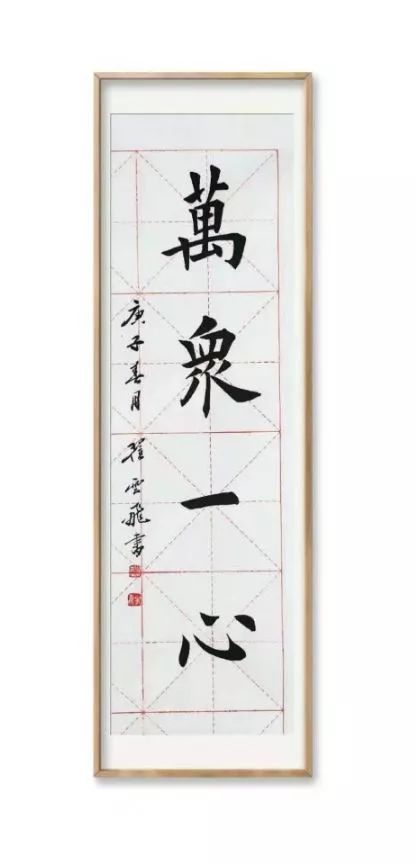 萬眾一心
庚子春月 程雲飛書